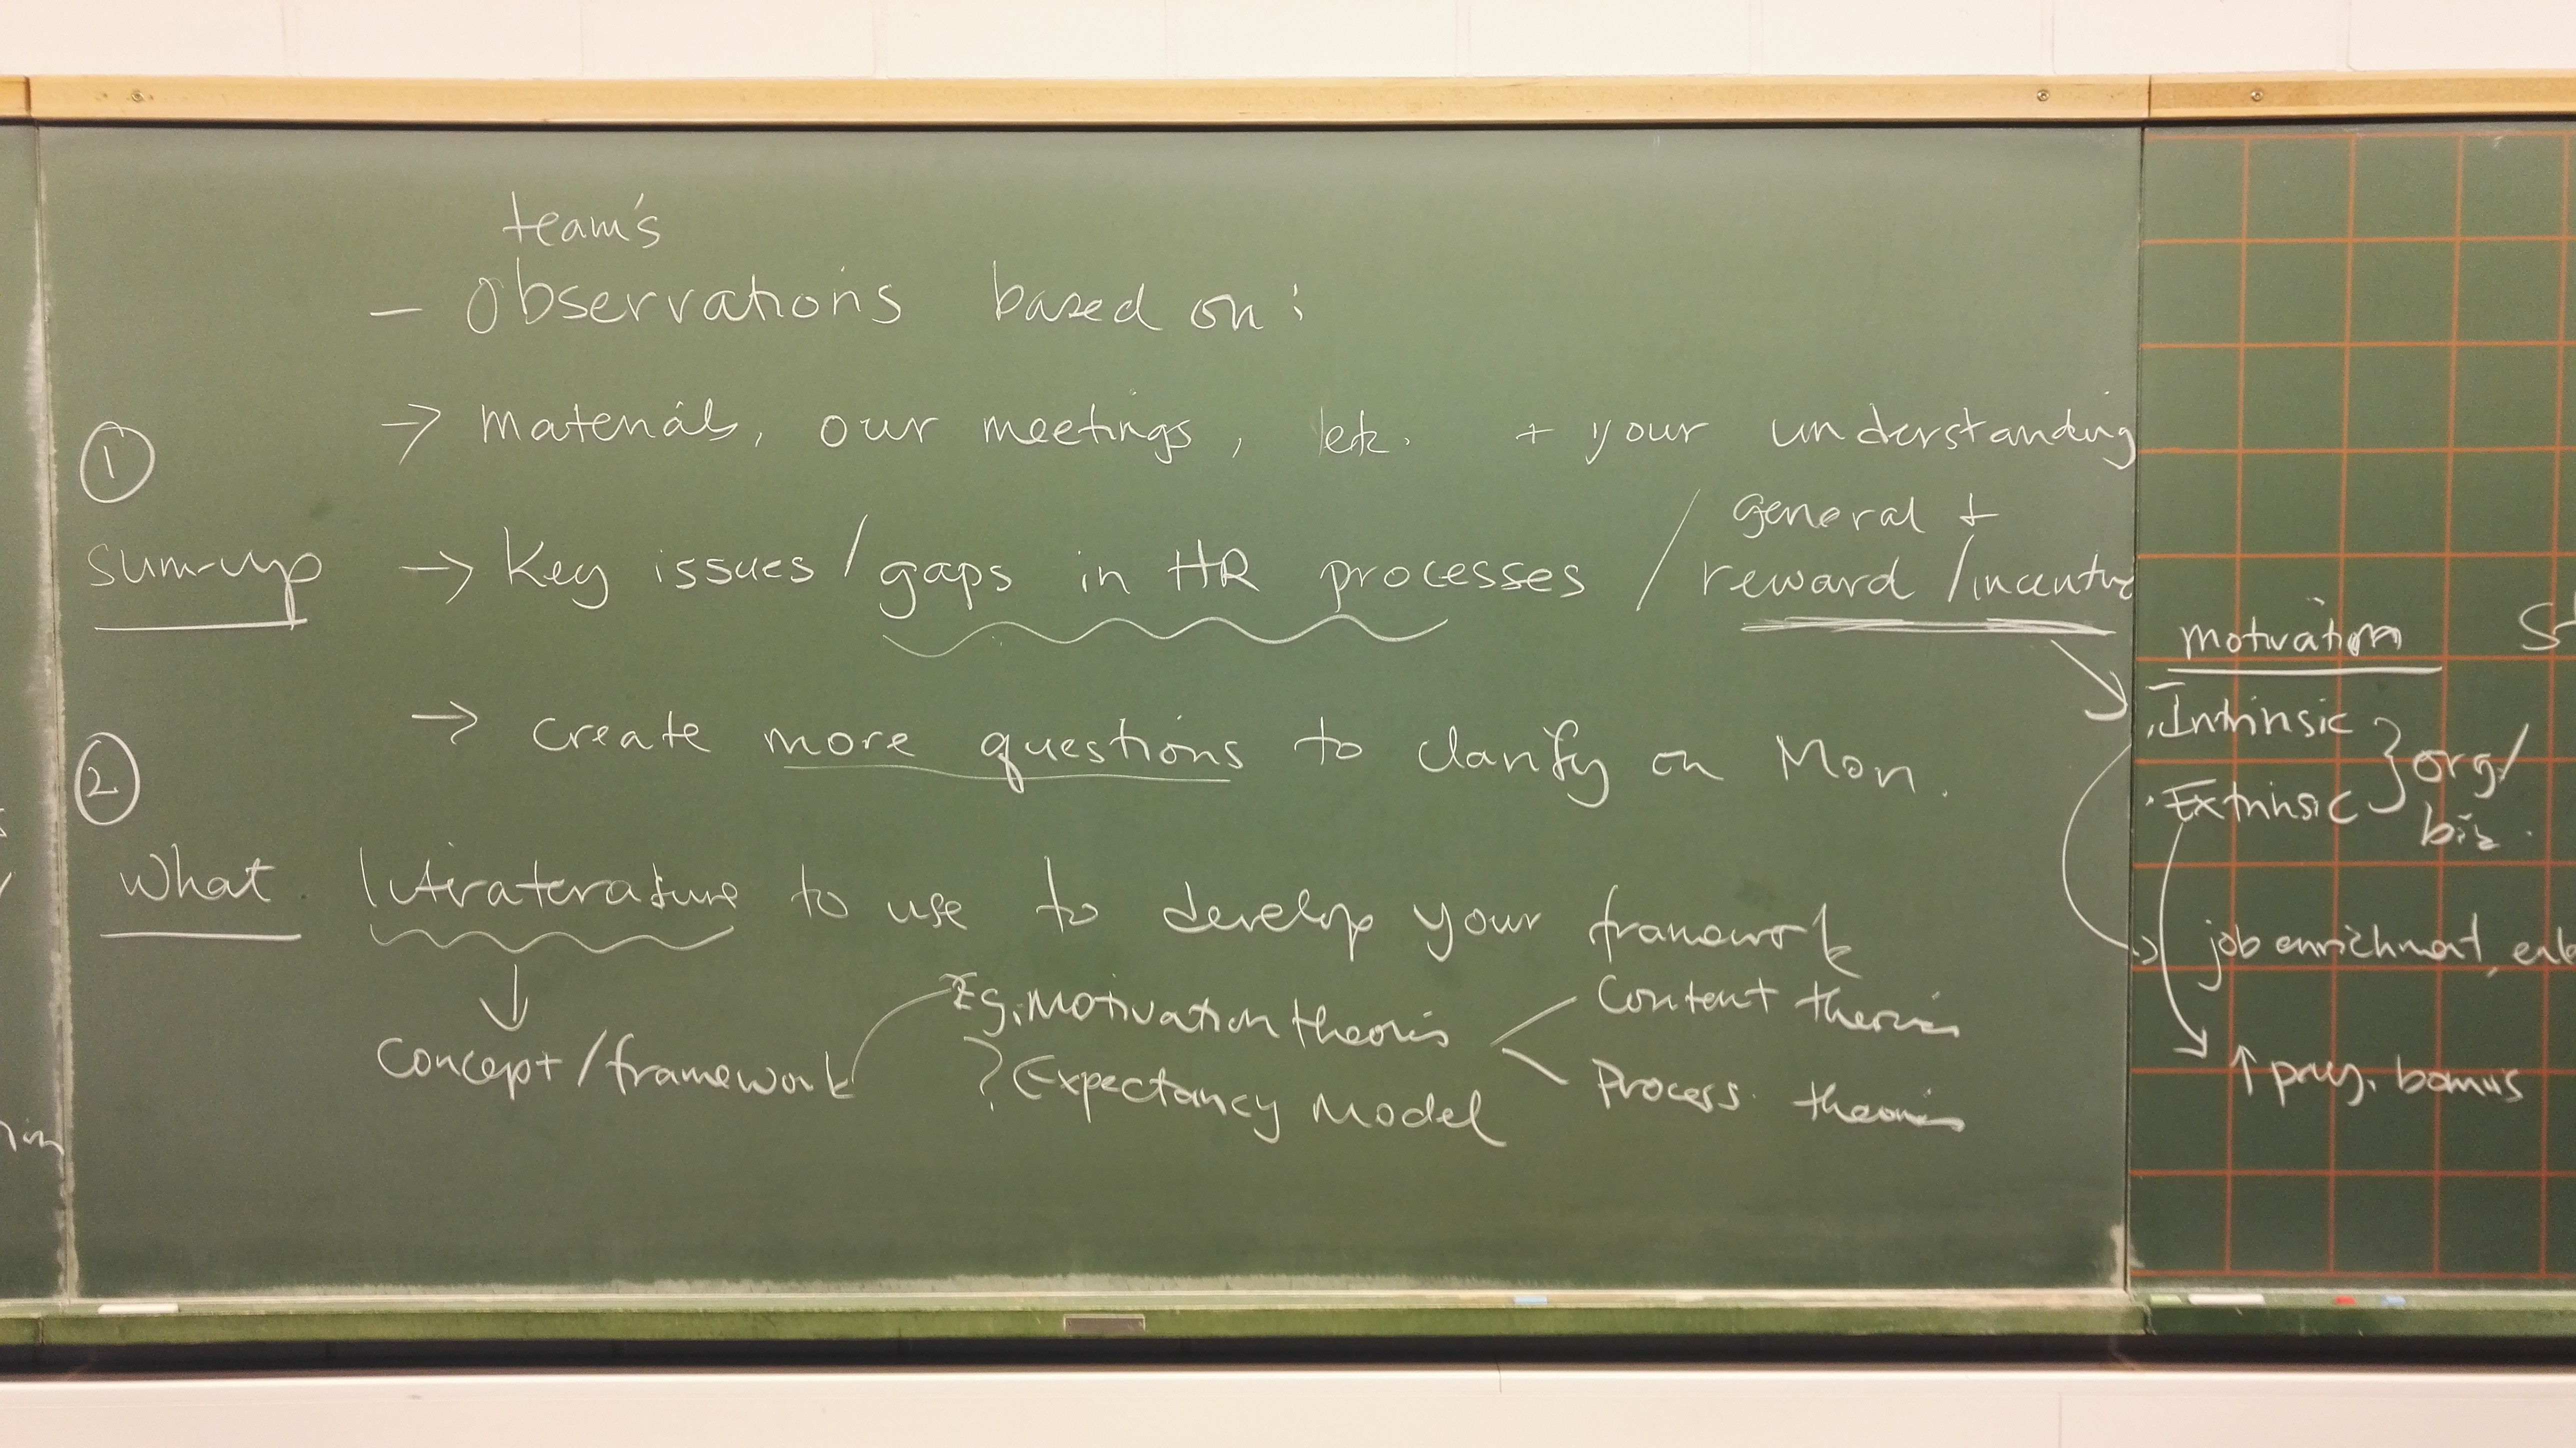 team's
- Observations based on:
→ materials, our meetings, etc. + your understanding
①
general +
sum-up → Key issues/gaps in HR processes / reward/incentive
motivation
→ create more questions to clarify on Mon.
②
· Intrinsic
· Extrinsic } org/
biz.
What literaterature to use to develop your framework
→ job enrichment,
↓
Eg. Motivation theories
Content theories
Concept/framework
? Expectancy Model
Process theories
↑ pay, bonus